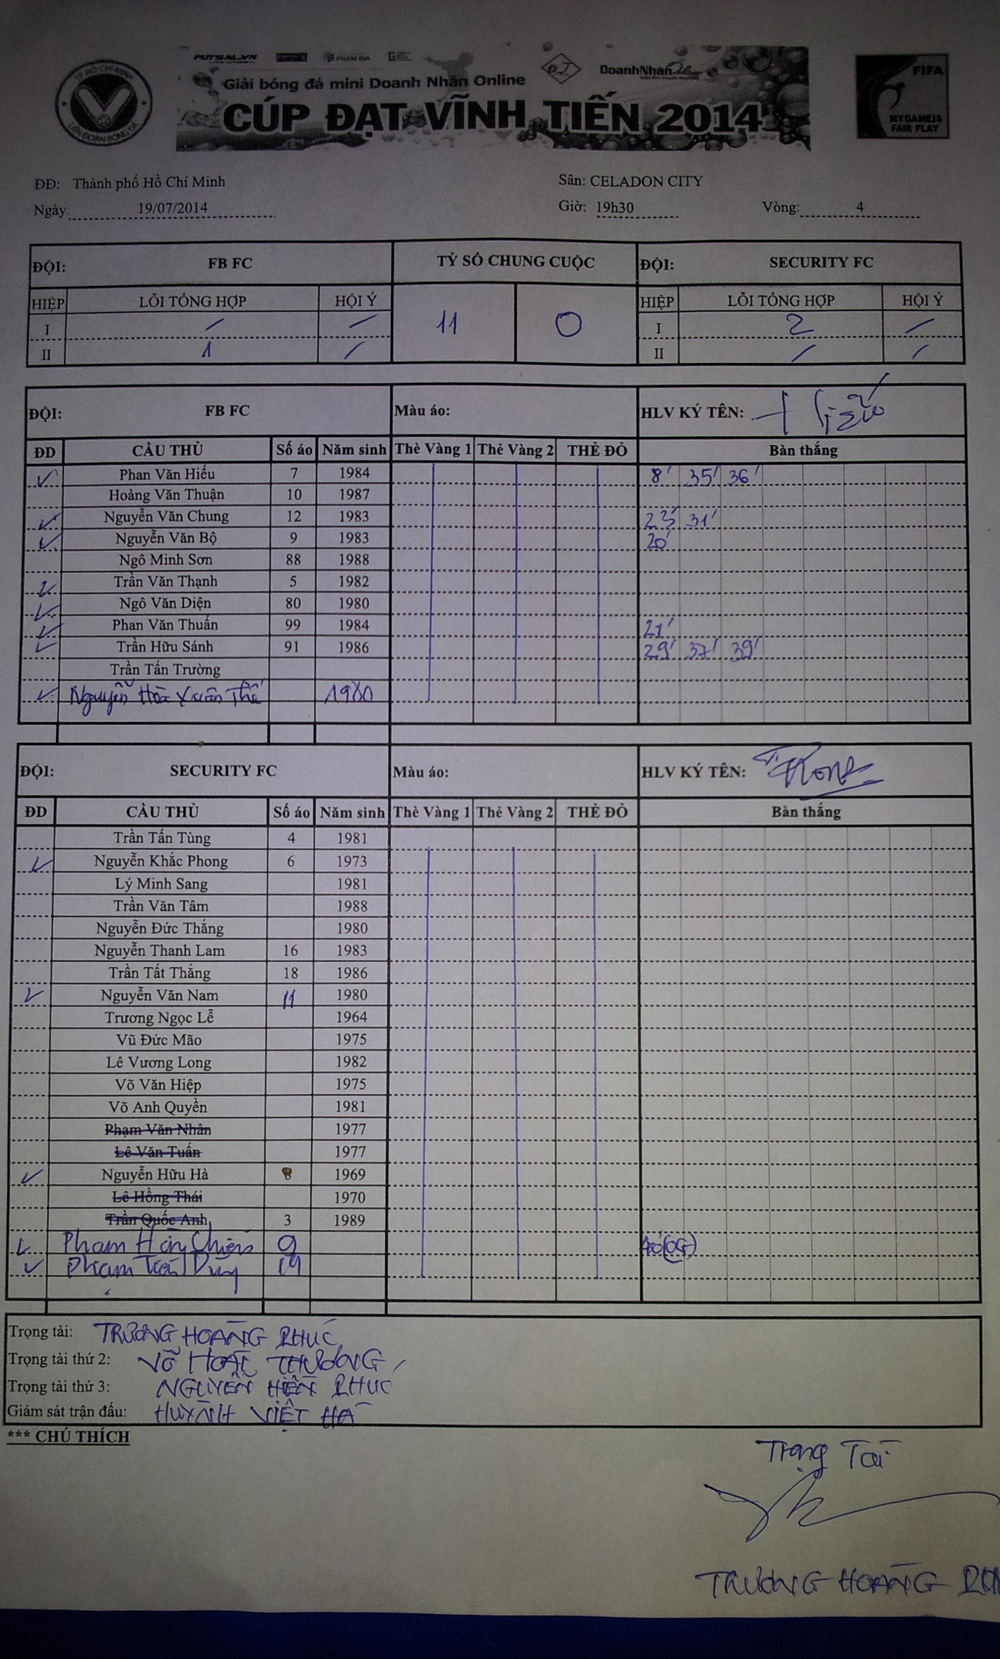 FUTSAL.VN
Giải bóng đá mini Doanh Nhân Online
DoanhNhan
CÚP ĐẠT VĨNH TIẾN 2014
TP HỒ CHÍ MINH
LIÊN ĐOÀN BÓNG ĐÁ
FIFA
MY GAME IS
FAIR PLAY
ĐĐ: Thành phố Hồ Chí Minh Sân: CELADON CITY
Ngày: 19/07/2014 Giờ: 19h30 Vòng: 4
ĐỘI: FB FC TỶ SỐ CHUNG CUỘC ĐỘI: SECURITY FC
HIỆP LỖI TỔNG HỢP HỘI Ý 11 0 HIỆP LỖI TỔNG HỢP HỘI Ý
I / / I 2 /
II 1 / II / /
ĐỘI: FB FC Màu áo: HLV KÝ TÊN:
ĐD CẦU THỦ Số áo Năm sinh Thẻ Vàng 1 Thẻ Vàng 2 THẺ ĐỎ Bàn thắng
Phan Văn Hiếu 7 1984 8' 35' 36'
Hoàng Văn Thuận 10 1987
Nguyễn Văn Chung 12 1983 23' 31'
Nguyễn Văn Bộ 9 1983 20'
Ngô Minh Sơn 88 1988
Trần Văn Thạnh 5 1982
Ngô Văn Diện 80 1980
Phan Văn Thuấn 99 1984 21'
Trần Hữu Sánh 91 1986 29' 37' 39'
Trần Tấn Trường
Nguyễn Hòa Xuân Thế 1980
ĐỘI: SECURITY FC Màu áo: HLV KÝ TÊN:
ĐD CẦU THỦ Số áo Năm sinh Thẻ Vàng 1 Thẻ Vàng 2 THẺ ĐỎ Bàn thắng
Trần Tấn Tùng 4 1981
Nguyễn Khắc Phong 6 1973
Lý Minh Sang 1981
Trần Văn Tâm 1988
Nguyễn Đức Thắng 1980
Nguyễn Thanh Lam 16 1983
Trần Tất Thắng 18 1986
Nguyễn Văn Nam 11 1980
Trương Ngọc Lễ 1964
Vũ Đức Mão 1975
Lê Vương Long 1982
Võ Văn Hiệp 1975
Võ Anh Quyền 1981
Phạm Văn Nhân 1977
Lê Văn Tuấn 1977
Nguyễn Hữu Hà 8 1969
Lê Hồng Thái 1970
Trần Quốc Anh 3 1989
Phạm Hữu Chiến 9 (OG)
Phạm Tiến Dũng 19
Trọng tài: TRƯƠNG HOÀNG PHÚC
Trọng tài thứ 2: VÕ HOÀI THƯƠNG
Trọng tài thứ 3: NGUYỄN HIỀN PHÚC
Giám sát trận đấu: HUỲNH VIỆT HÀ
*** CHÚ THÍCH
Trọng Tài
TRƯƠNG HOÀNG